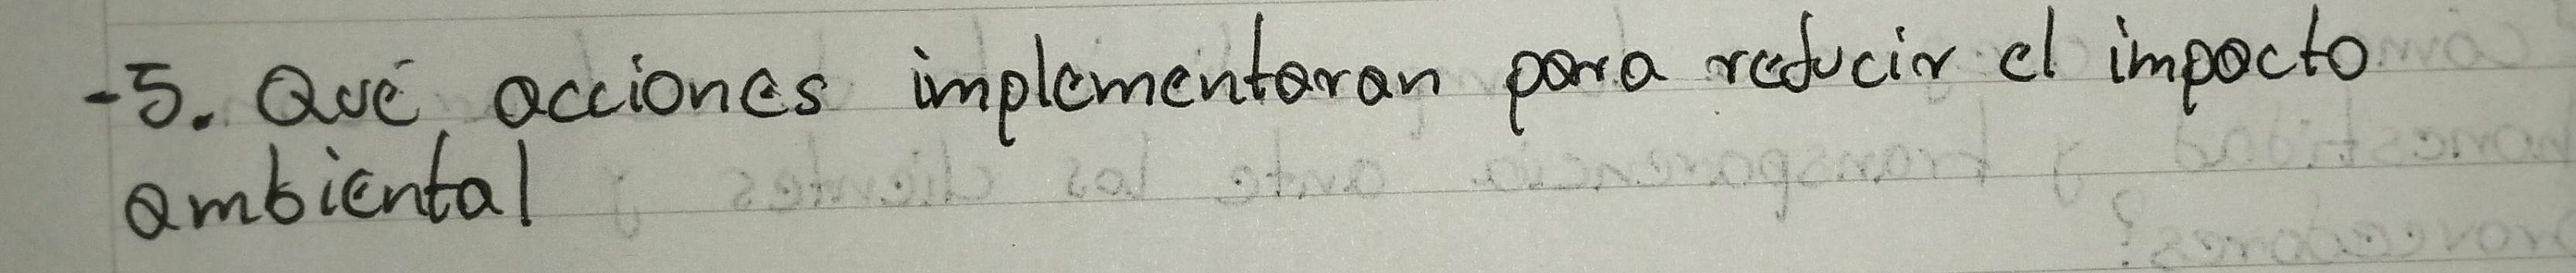 -5. Qué acciones implementaran para reducir el impacto
ambiental